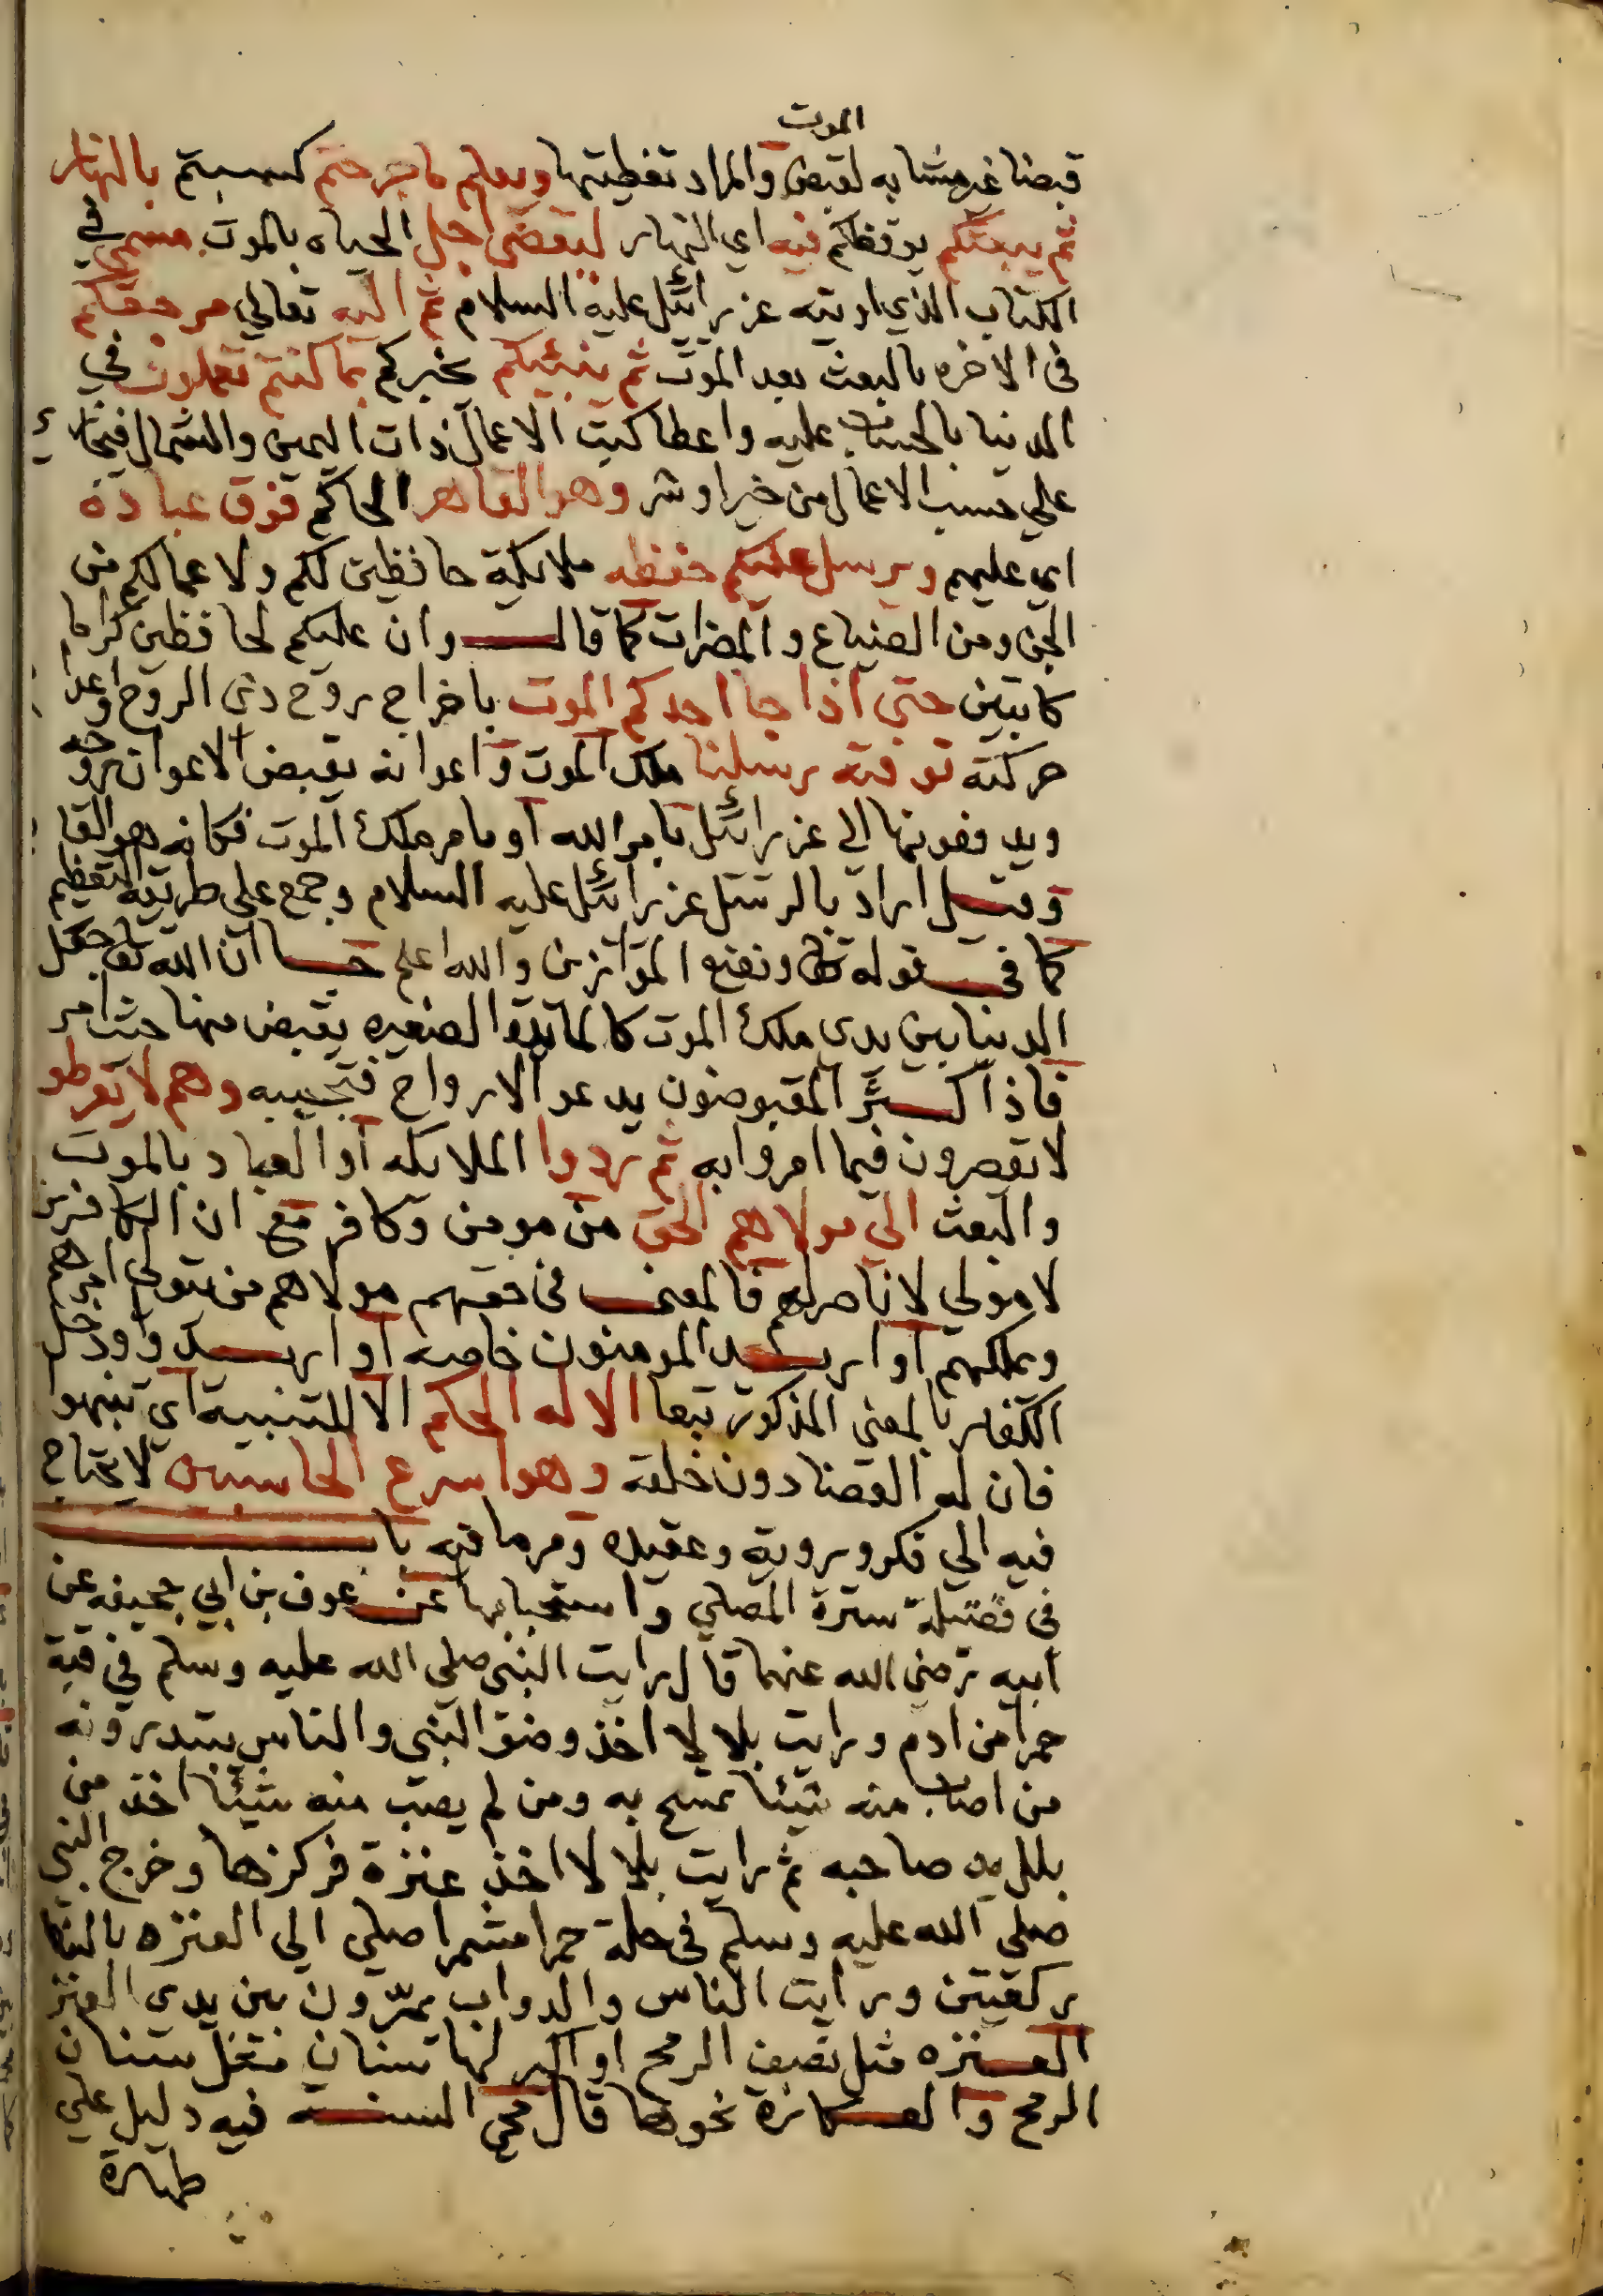 الموت
قبضا غير مشابه لقبض والمراد تغطيتها ويعلم ما جرحتم كسبتم بالنهار
ثم يبعثكم يوقظكم فيه اي النهار ليقضى اجل الحياه بالموت مسمى في
الكتاب الذي اوتيه عزرائيل عليه السلام ثم اليه تعالي مرجعكم
فى الاخره بالبعث بعد الموت ثم ينبئكم يخبركم بما كنتم تعملون في
الدنيا بالحساب عليه واعطا كتب الاعمال ذات اليمين والشمال
علي حسب الاعمال من خير او شر وهو القاهر الحاكم فوق عباده
اي عليهم ويرسل عليكم حفظه ملايكة حافظين لكم ولاعمالكم من
الجن ومن الضياع والمضرات كما قال وان عليكم لحافظين كراما
كاتبين حتى اذا جا احدكم الموت باخراج روح ذى الروح
حركته توفته رسلنا ملك الموت واعوانه يقبض الاعوان روحه
ويدفعونها الى عزرائيل بامر الله او بامر ملك الموت فكانه هو القا
وقيل اراد بالرسل عزرائيل عليه السلام وجمع على طريقة التعظيم
كما في قوله ونضع الموازين والله اعلم جا ان الله تعالى جعل
الدنيا بين يدي ملك الموت كالمائدة الصغيره يقبض منها حيث امر
فاذا كثر المقبوضون يدعو الارواح فتجيبه وهم لا يفرطو
لا يقصرون فيما امروا به ثم ردوا الملايكه او العباد بالموت
والبعث الي مولاهم الحق من مومن وكافر مع ان الكافرين
لا مولي لا ناصر لهم فالمعنى فى حقهم مولاهم من يتولى امرهم
ويملكهم او اريد المومنون خاصه او اريدوا ودخل
الكفار بالمعنى المذكور تبعا الا له الحكم الا للتنبيه اي تنبهوا
فان له القضا دون خلقه وهو اسرع الحاسبين لا يحتاج
فيه الي فكر وروية وعقيده ومر ما فيه باب
فى فضيلة سترة المصلي واستحبابها عن عوف بن ابي جحيفه عن
ابيه رضى الله عنهما قال رايت النبى صلى الله عليه وسلم في قبة
حمرا من ادم ورايت بلالا اخذ وضو النبي والناس يبتدرونه
من اصاب منه شيئا تمسح به ومن لم يصب منه شيئا اخذ من
بلل يد صاحبه ثم رايت بلالا اخذ عنزة فركزها وخرج النبي
صلى الله عليه وسلم فى حلة حمرا مشمرا صلي الي العنزه بالنا
ركعتين ورايت الناس والدواب يمرون بين يدي العنز
العنزه مثل نصف الرمح او اكبر لها سنان مثل سنان
الرمح والعكازة نحوها قال محي السنة فيه دليل علي
طهارة